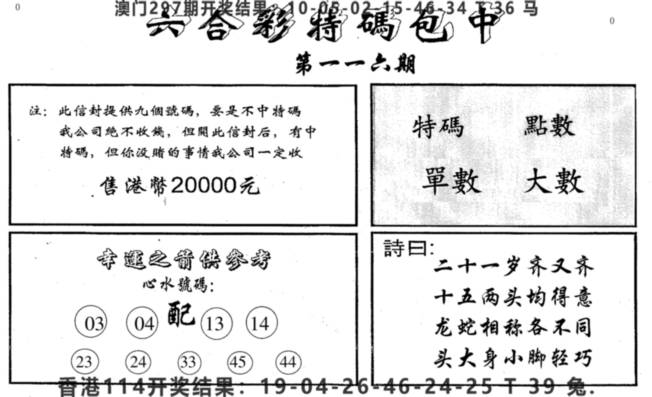 澳门297期开奖结果：10-05-02-15-46-34 T 36 马
0
六合彩特碼包中
0
第一一六期
注：此信封提供九個號碼，要是不中特碼
我公司絶不收錢，但開此信封后，有中
特碼，但你没賭的事情我公司一定收
售港幣20000元
特碼 點數
單數 大數
幸運之箭供參考
心水號碼：
03 04 配 13 14
23 24 33 45 44
詩曰：
二十一岁齐又齐
十五两头均得意
龙蛇相称各不同
头大身小脚轻巧
香港114开奖结果：19-04-26-46-24-25 T 39 兔.